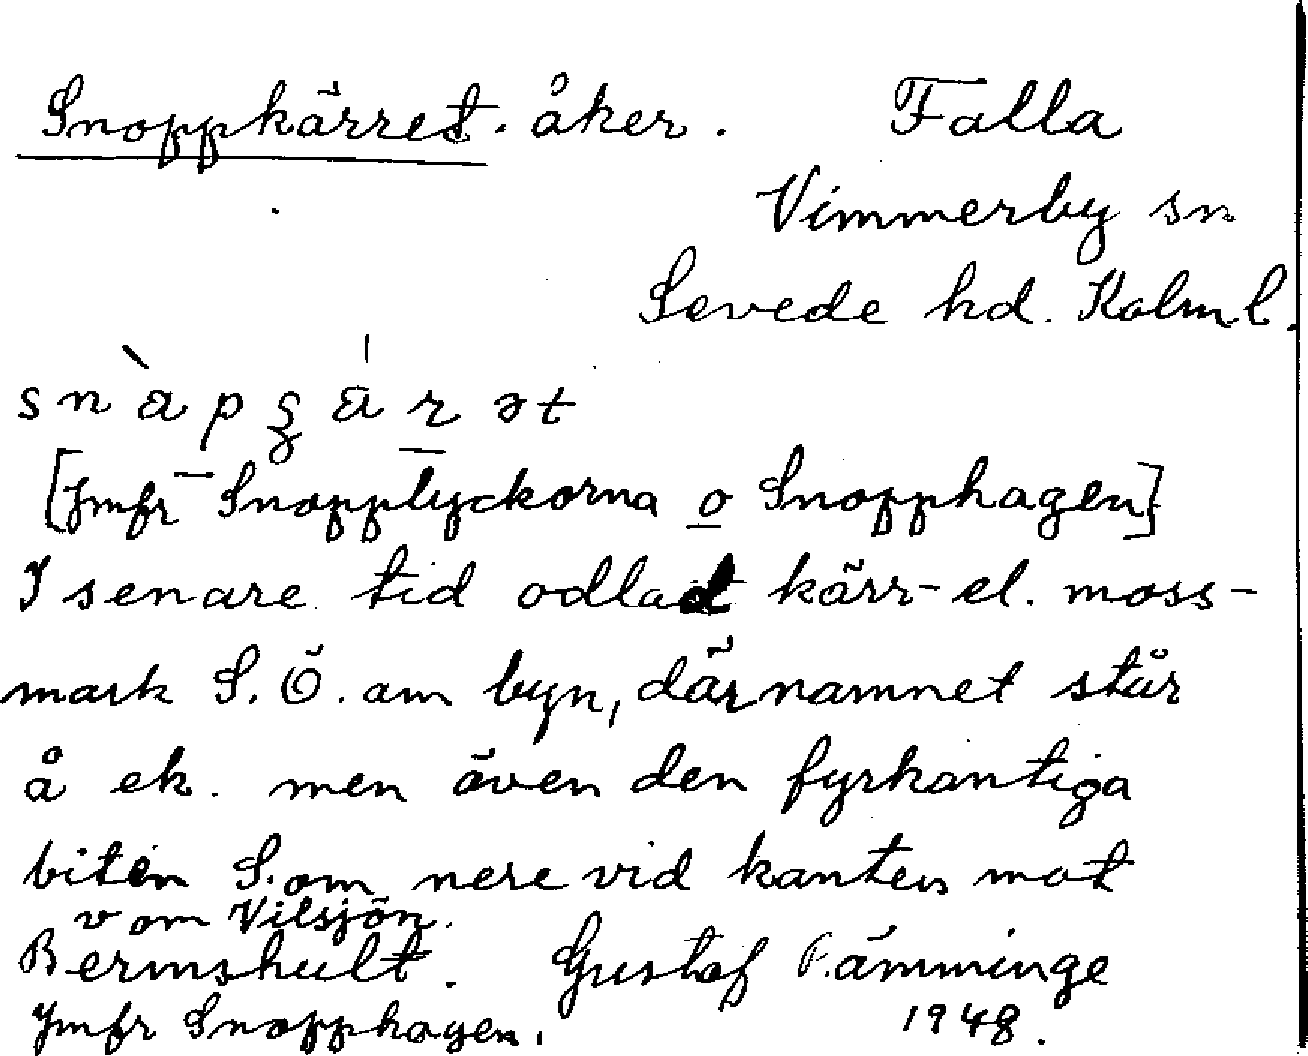 Snoppkärret. åker. Falla
Vimmerby sn
Sevede hd. Kalm. l.
snàpʂä́rət
[Jmfr Snopplyckorna o Snopphagen]
I senare tid odlad kärr- el. moss-
mark S.Ö. om byn, där namnet står
å ek. men även den fyrkantiga
biten S. om nere vid kanten mot
v om Vilsjön.
Bermshult. Gustaf Fämminge
Jmfr Snopphagen. 1948.